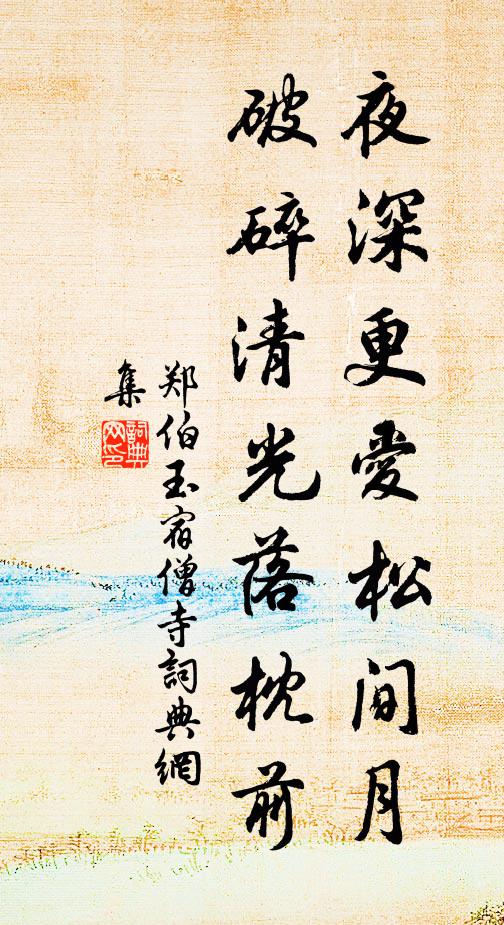 夜深更愛松间月
破碎清光落枕前
郑伯玉宿僧寺詞典網
集
詞典网印